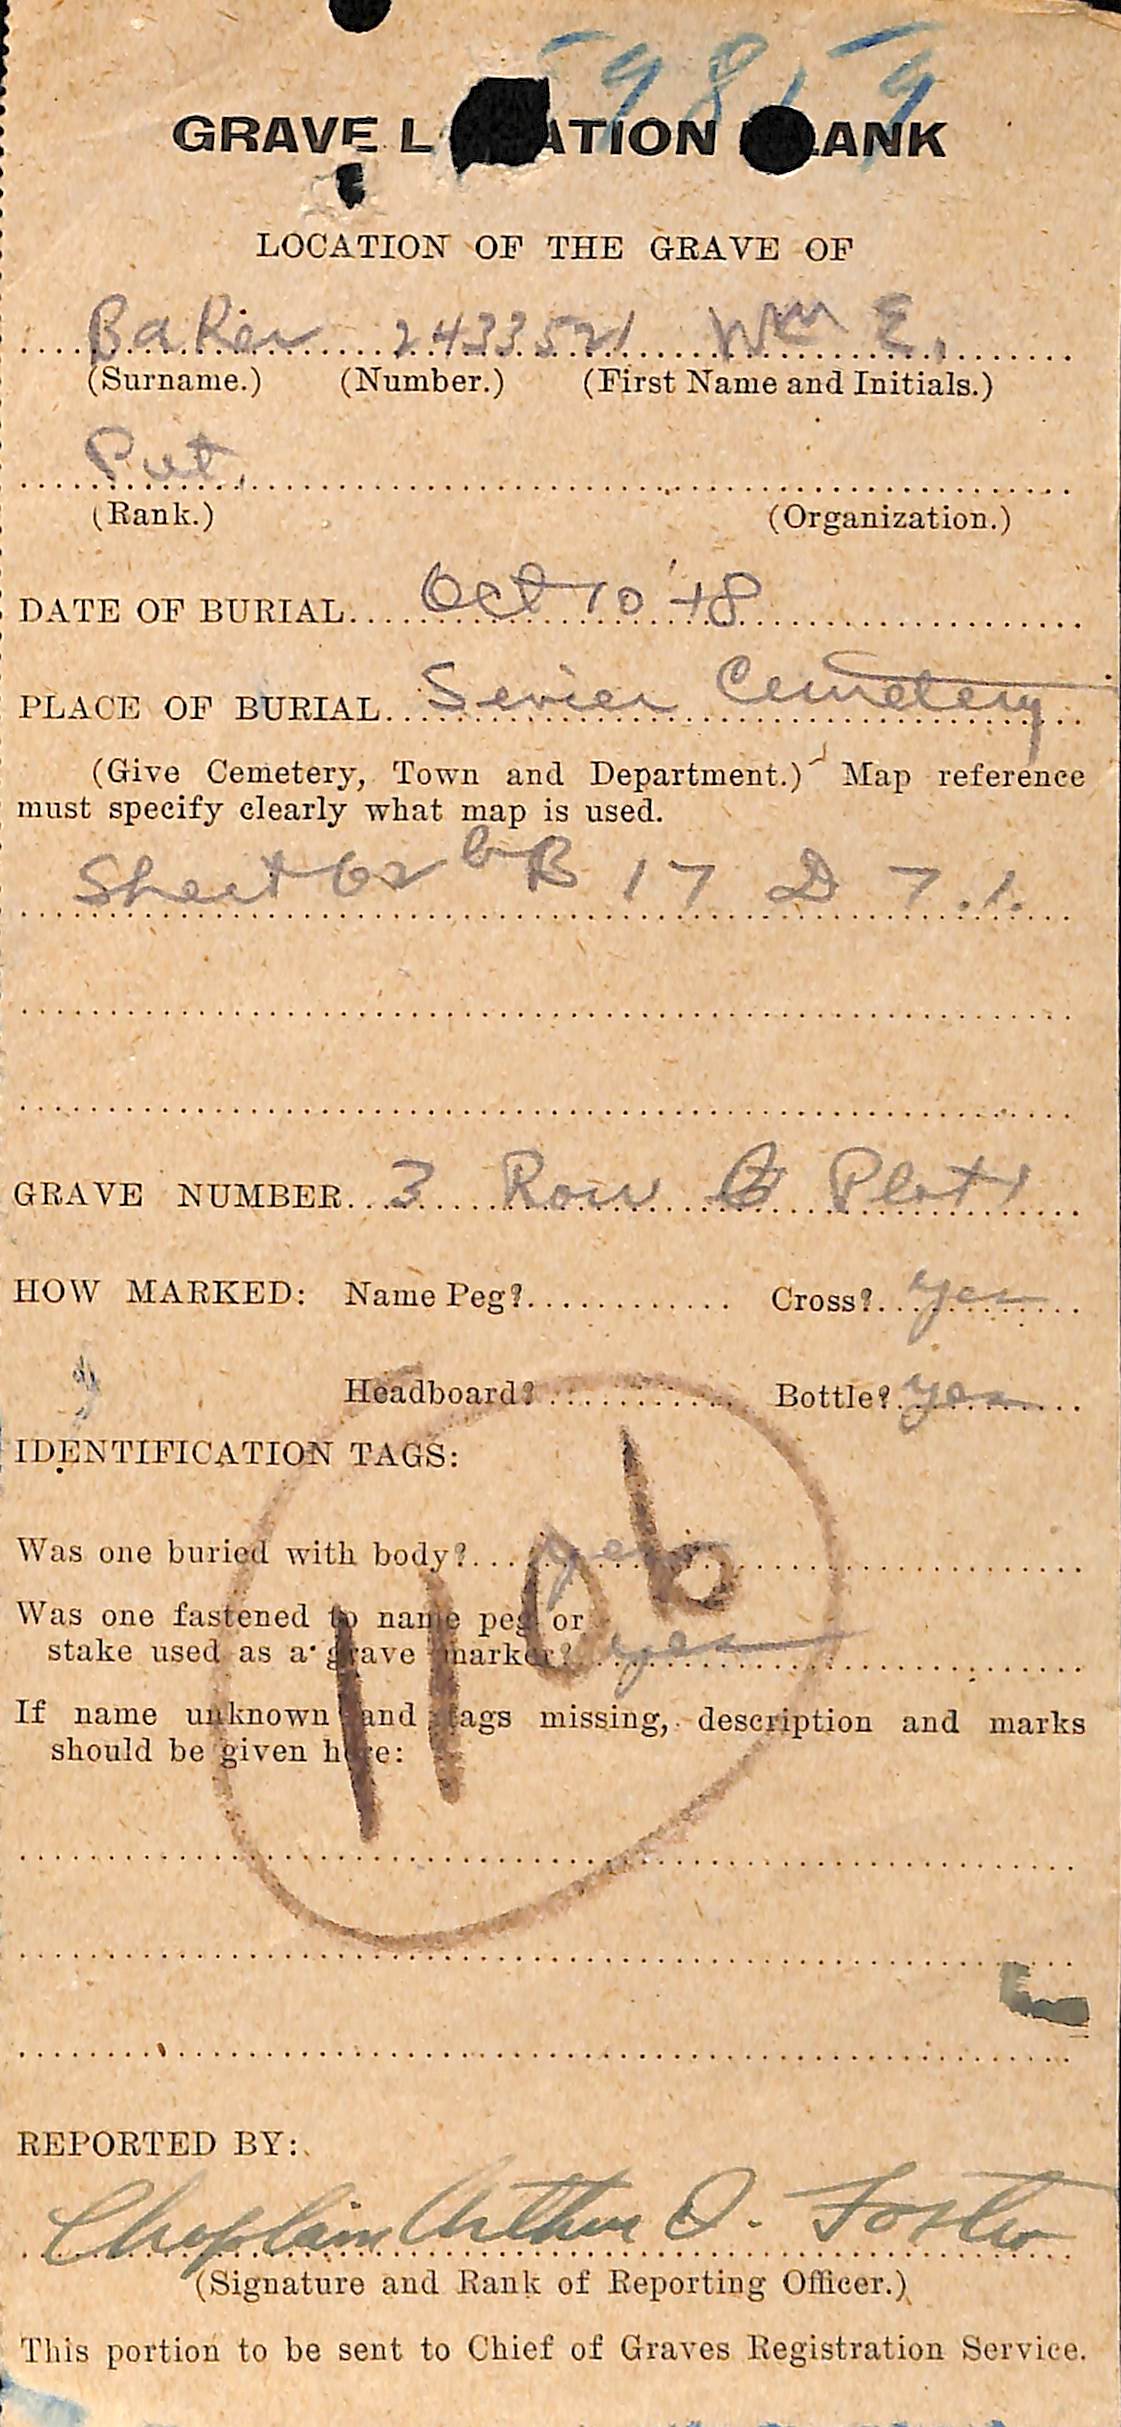 59819
GRAVE L ATION ANK
LOCATION OF THE GRAVE OF
Baker 2433521 Wm E.
(Surname.) (Number.) (First Name and Initials.)
Pvt.
(Rank.) (Organization.)
DATE OF BURIAL Oct 10 '18
PLACE OF BURIAL Sevier Cemetery
(Give Cemetery, Town and Department.) Map reference
must specify clearly what map is used.
Sheet 62 B 17 D 7.1.
GRAVE NUMBER 3 Row Plot 1
HOW MARKED: Name Peg? Cross? yes
Headboard? Bottle? yes
IDENTIFICATION TAGS:
Was one buried with body? yes
Was one fastened to name peg or
stake used as a grave marker? yes
1106
If name unknown and tags missing, description and marks
should be given here:
REPORTED BY:
Chaplain Arthur O. Foster
(Signature and Rank of Reporting Officer.)
This portion to be sent to Chief of Graves Registration Service.